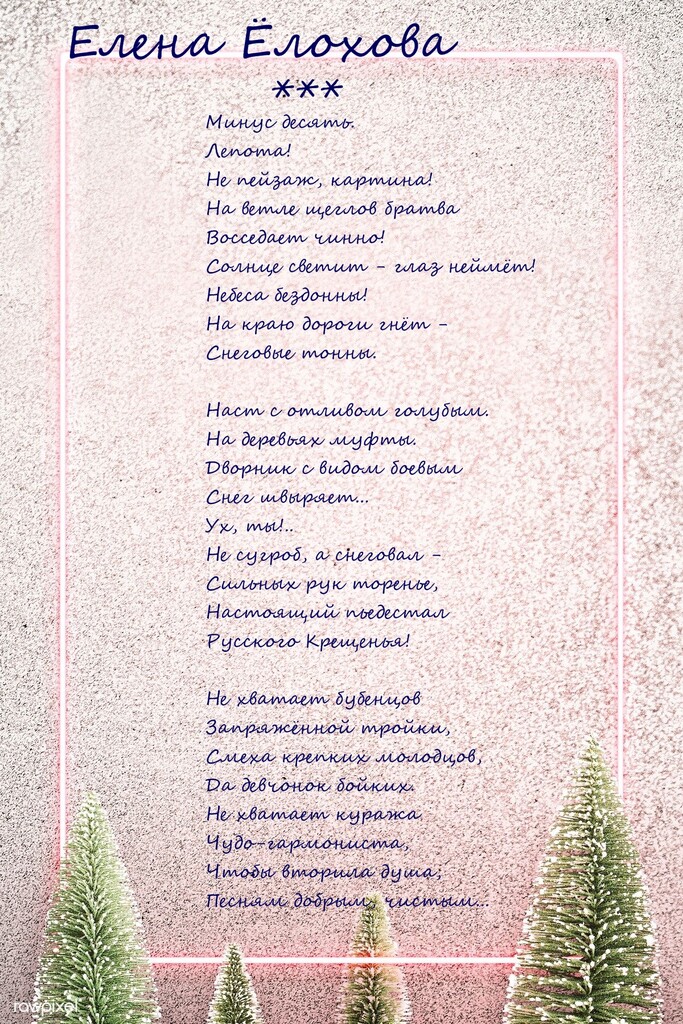 Елена Ёлохова
***
Минус десять.
Лепота!
Не пейзаж, картина!
На ветле щеглов братва
Восседает чинно!
Солнце светит - глаз неймёт!
Небеса бездонны!
На краю дороги гнёт -
Снеговые тонны.
Наст с отливом голубым.
На деревьях муфты.
Дворник с видом боевым
Снег швыряет...
Ух, ты!..
Не сугроб, а снеговал -
Сильных рук торенье,
Настоящий пьедестал
Русского Крещенья!
Не хватает бубенцов
Запряжённой тройки,
Смеха крепких молодцов,
Да девчонок бойких.
Не хватает куража
Чудо-гармониста,
Чтобы вторила душа;
Песням добрым, чистым...
rawpixel